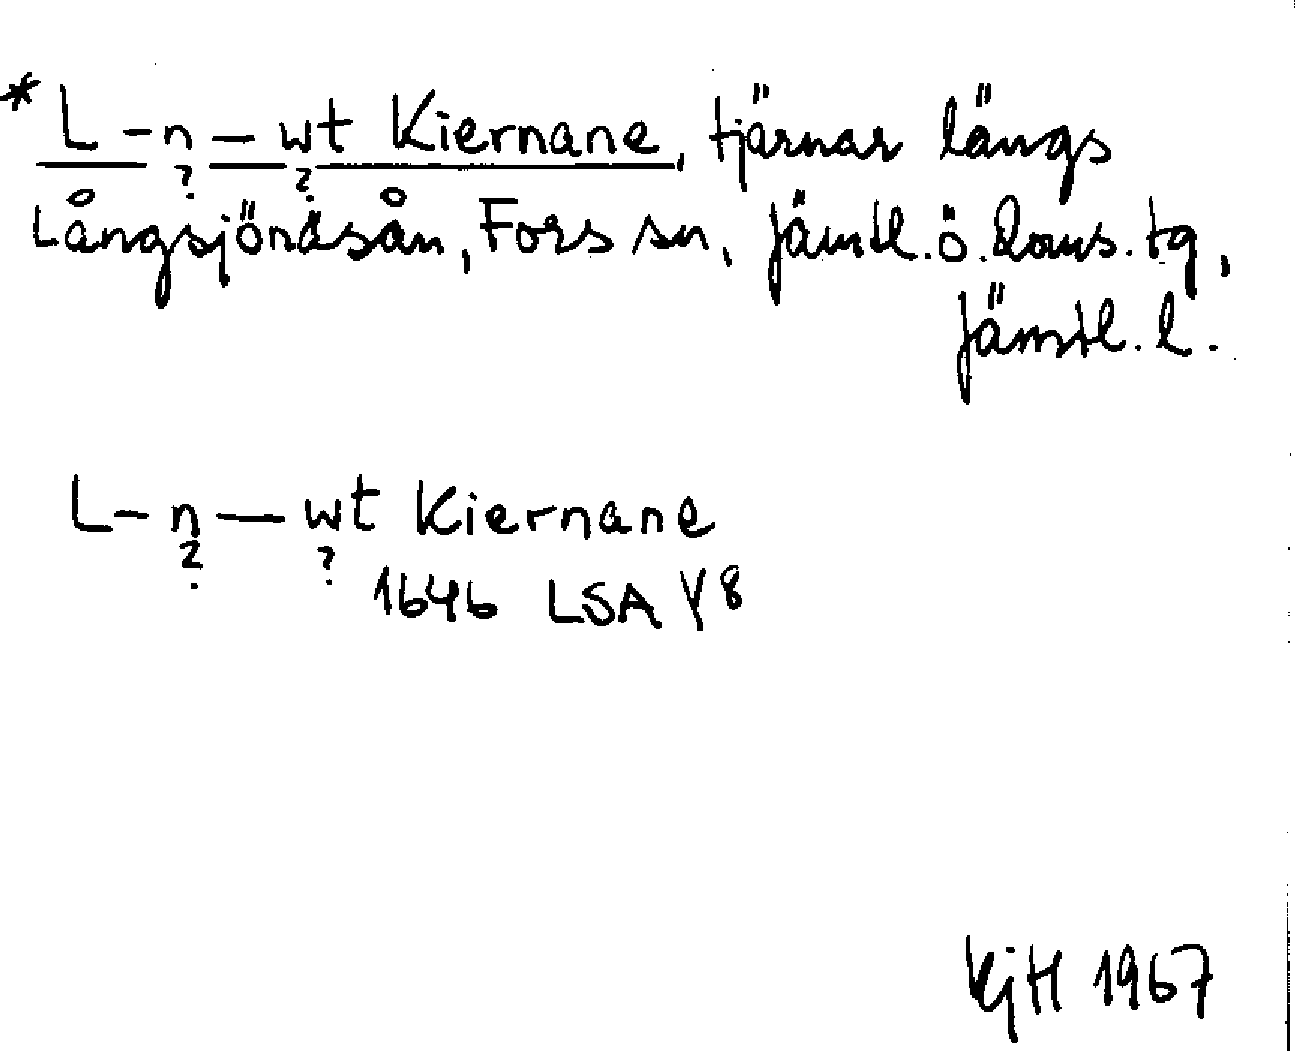 * L - n - wt Kiernane, tjärnar längs
? ?
Långsjönäsån, Fors sn, Jämtl. ö. doms. tg,
Jämtl. l.
L- n - wt Kiernane
? ?
1646 LSA Y8
KjH 1967